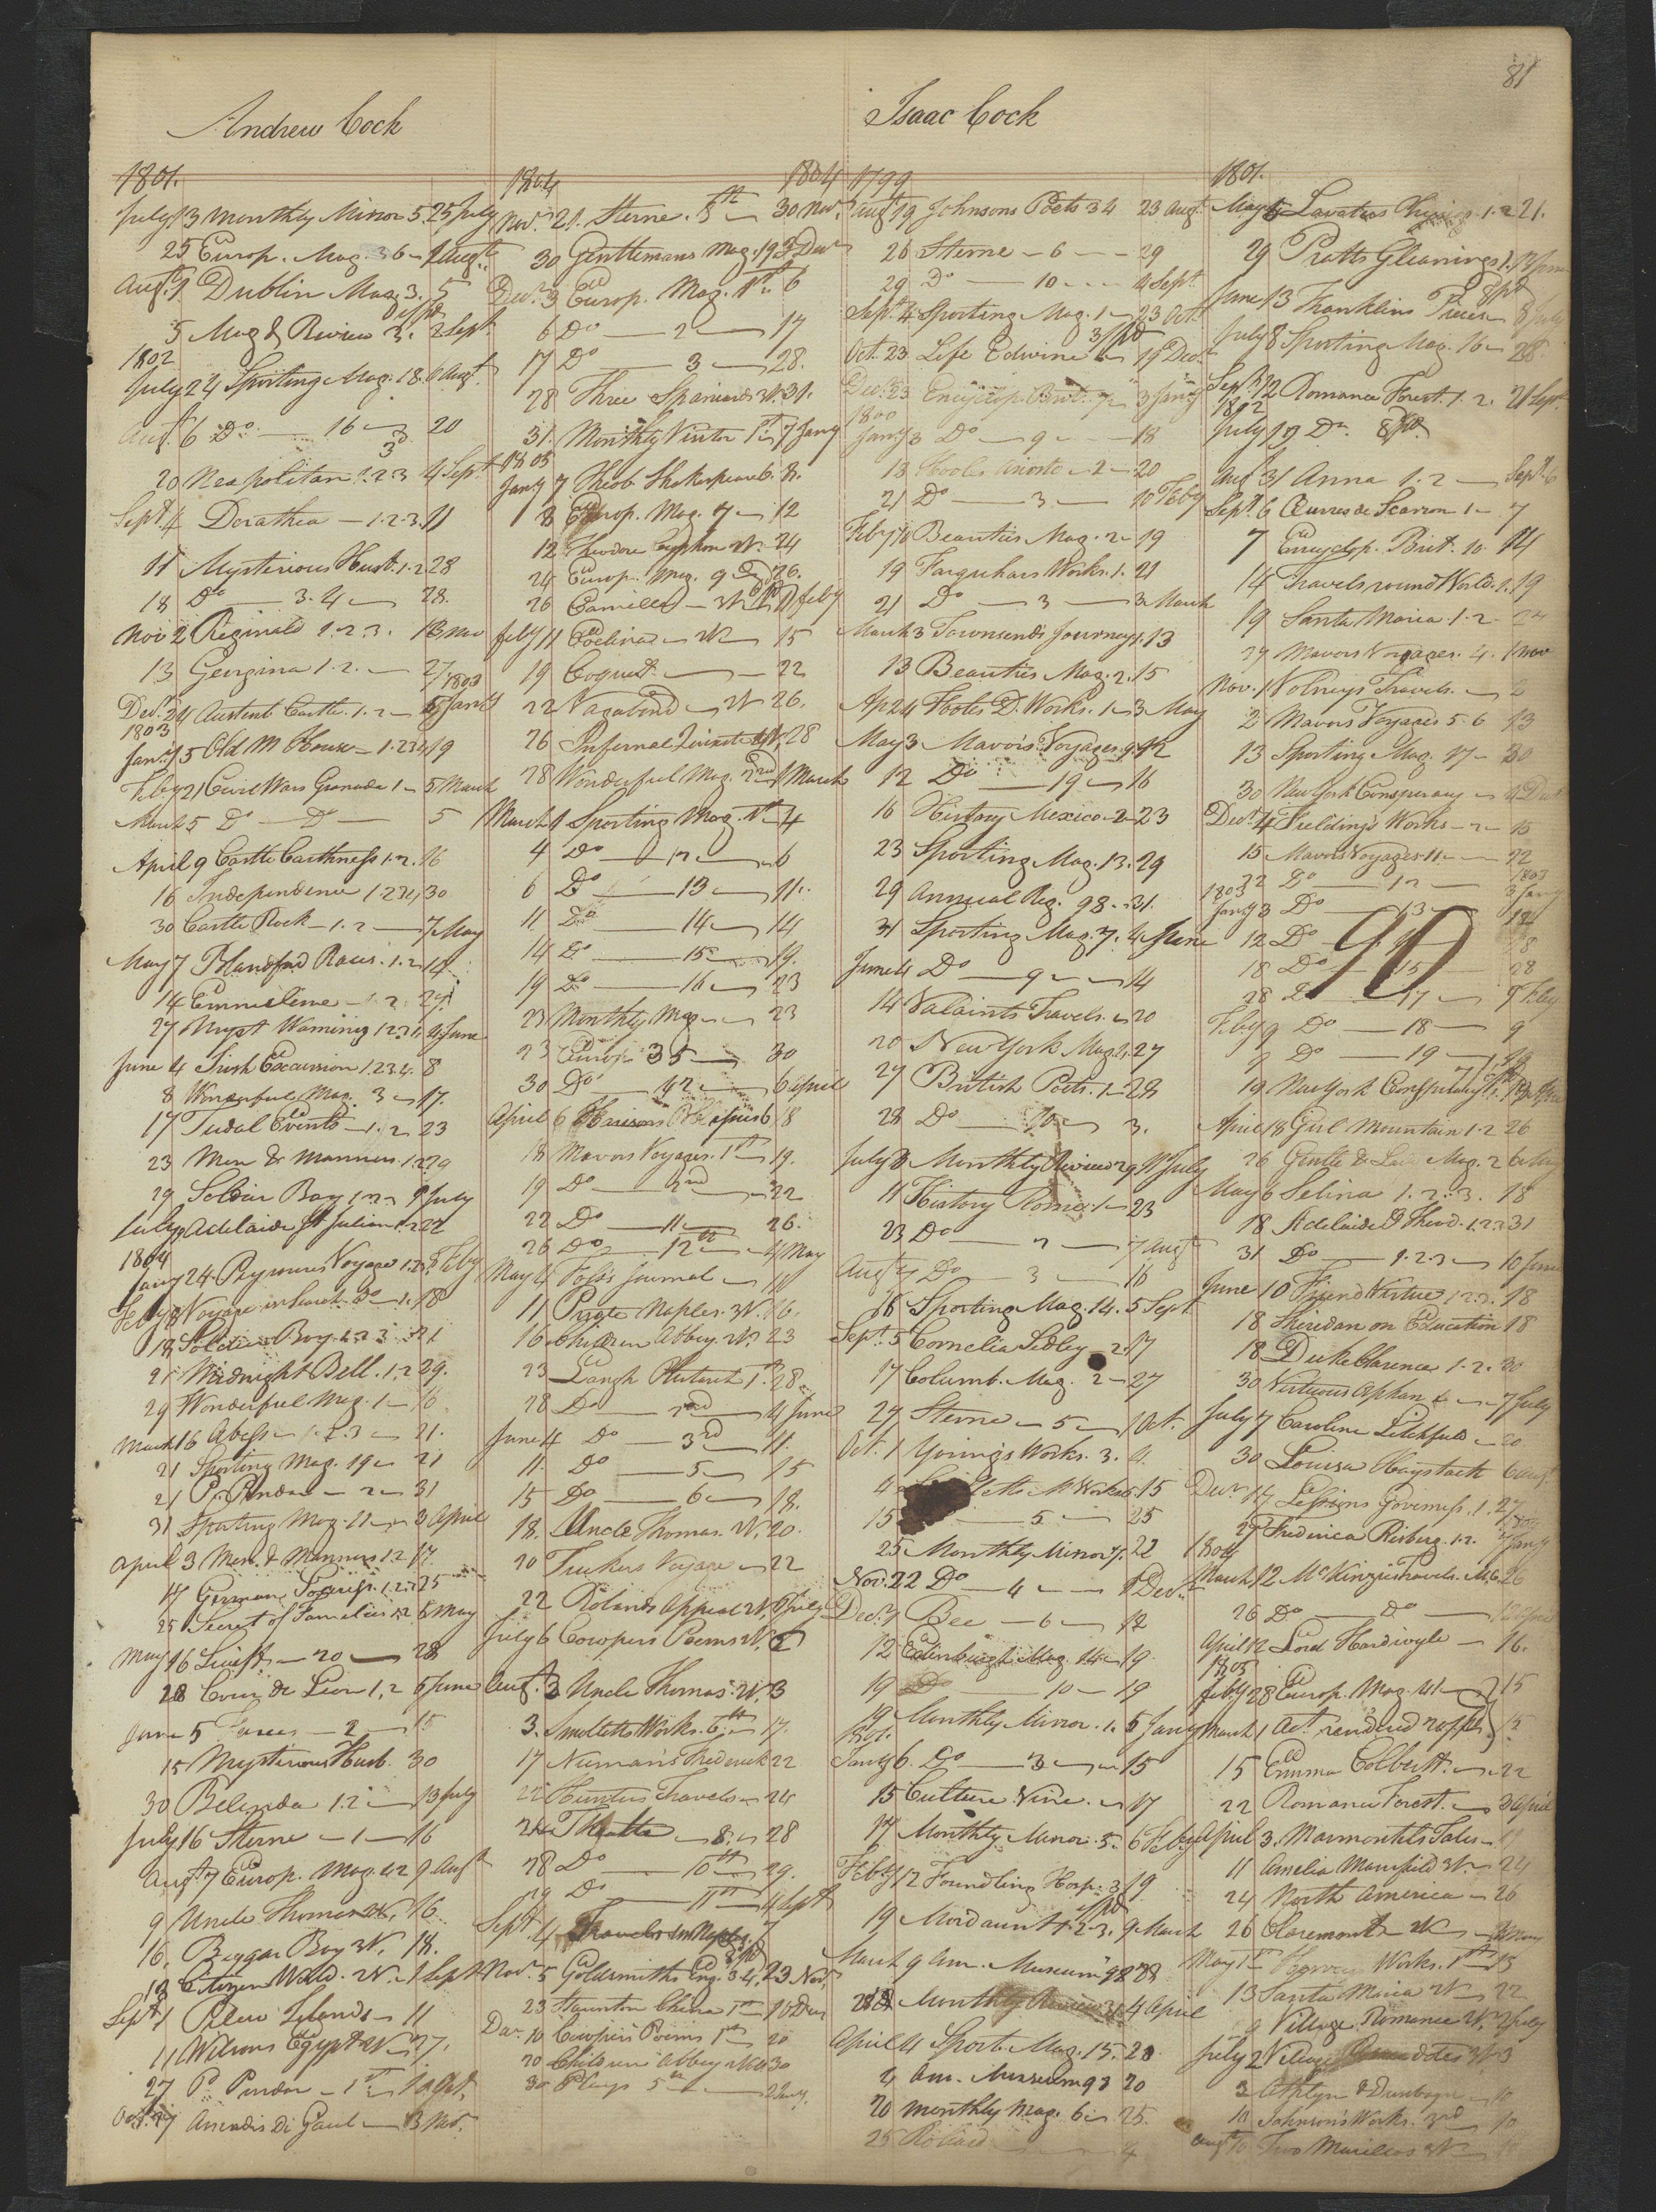 81
Andrew Cock
1801.
July 13 Monthly Mirror 5. 25 July
25 Europ. Mag. 36 1 Augt
Augt 1 Dublin Mag. 3. 5
5 Mag & Review 3. 2 Sept
1802
July 24 Sporting Mag. 18. 6 Augt
Augt 6 Do 16 20
20 Neapolitan 1.2.3 4 Sept
Sept 4 Dorathea 1.2.3. 11
11 Mysterious Husb. 1.2 28
18 Do 3.4 28.
Nov 2 Reginald 1.2.3. 13 Nov
13 Georgina 1.2. 27
1803
Decr 24 Austenb Castle. 1.2 5 Jany
1803
Jany 5 Old M House 1.2.3.4 19
Feby 21 Civil Wars Granada 1 5 March
March 5 Do Do 5
April 9 Castle Caithness 1.2. 16
16 Independence 1.2.3.4 30
30 Castle Rock 1.2 7 May
May 7 Blandford Races. 1.2 14
14 Emmeline 1.2 27
27 Myst Warning 1.2.3.4 4 June
June 4 Irish Excursion 1.2.3.4. 8
8 Wonderful Mag. 3 17.
17 Judal Events 1.2 23
23 Men & Manners. 1.2 29
29 Soldier Boy 1.2.3 9 July
July 9 Adelaide St Julian 1.2 22
1804
Jany 24 Peyrouses Voyage 1.2.3. 8 Feby
Feby 8 Voyage in Search Do 1. 18
18 Soldier Boy 1.2.3 21
21 Midnight Bell. 1.2 29.
29 Wonderful Mag. 1 16
March 16 Abess 1.2.3 21.
21 Sporting Mag. 19 21
21 P. Pindar 2 31
31 Sporting Mag. 11 3 April
April 3 Men & Manners 1.2 17.
17 German 1.2.3 25
25 Secret of Families 1.2 8 May
May 16 Swift 20 28
28 Coeur de Lion 1.2 5 June
June 5 Farces 2 15
15 Mysterious Husb. 30
30 Belinda 1.2 13 July
July 16 Sterne 1 16
Augt 7 Europ. Mag. 42 9 Augt
9 Uncle Thomas W. 16
16. Beggar Boy W. 18.
18 Citizen World. W. 1 Sept
Sept 1 Pelew Islands 11
11 Wilsons Egypt W 27.
27 P. Pindar 1st 1 Oct.
Oct. 27 Amadis Di Gaul 3 Nov.
1804 1804
Novr 21. Sterne. 5th 30 Novr
30 Gentlemans Mag. 19 3 Decr
Decr 3 Europ. Mag. 1st 6
6 Do 2 17
17 Do 3 28.
28 Three Spaniards W. 31.
31. Monthly Visitor 1st 7 Jany
1805
Jany 7 Theob Shakespeare 6. 8.
8 Europ. Mag. 7 12
12 Theodore Cyphon W. 24
24 Europ. Mag. 9 26.
26 Camilla W 11 Feby
Feby 11 Evelina W 15
19 Coquet 22
22 Vagabond W 26.
26 Infernal Quixote W. 28
28 Wonderful Mag. 2nd 1 March
March 1 Sporting Mag. 1st 4
4 Do 12 6
6 Do 13 11.
11 Do 14 14
14 Do 15 19.
19 Do 16 23
23 Monthly Mag 23
23 Europ 35 30
30 Do 42 6 April
April 6 Harrisons 6 18
18 Mavors Voyages. 1st 19.
19 Do 2nd 22
22 Do 11 26.
26 Do 12th 4 May
May 4 Foss's Journal 11
11 Pirate Naples. 3W. 16.
16 Children Abbey W. 23
23 Langh Plutarch 1st 28
28 Do 2nd 4 June
June 4 Do 3rd 11.
11. Do 5 15
15 Do 6 18.
18. Uncle Thomas. W. 20.
20 Tuckers Voyage 22
22 Rolands Appeal W. 6 July
July 6 Cowpers Poems W.
Augt. 3 Uncle Thomas W. 3
3. Smolletts Works. 6th 17.
17 Numans Frederick 22
22 Hunters Travels 24
24 Theatre 8. 28
28 Do 10th 29.
29 Do 11th 4 Sept
Sept. 4 Travels in Naples 7
Novr 5 Goldsmiths Eng. 3 4. 23 Nov.
23 Staunton China 1st 10 Decr
Decr 10 Cowpers Poems 1st 20
20 Childrens Abbey W 30
30 Plays 5th 2 Jany.
Isaac Cock
1799
Augt 19 Johnsons Poets 34 23 Augt
26 Sterne 6 29
29 Do 10 4 Sept
Sept. 4 Sporting Mag. 1 23 Oct.
Oct. 23 Life Edwine 19 Decr
Decr 23 Encyclop. Brit. 7 3 Jany
1800
Jany 3 Do 9 18
18 Hools Ariosto 2 20
21 Do 3 10 Feby
Feby 10 Beauties Mag. 2 19
19 Farquhars Works. 1. 21
21 Do 3 3 March
March 3 Townsends Journey 1. 13
13 Beauties Mag. 2. 15
Ap 24 Foote D. Works. 1 3 May
May 3 Mavors Voyages. 9 12
12 Do 19 16
16 History Mexico 2 23
23 Sporting Mag. 13. 29
29 Annual Reg. 98. 31.
31 Sporting Mag. 7. 4 June
June 4 Do 9 14
14 Valaints Travels. 20
20 New York Mag. 2. 27
27 British Poets. 1 28
28 Do 10 3.
July 3 Monthly Review 29 11 July
11 History Rome. 1 23
23 Do 2 7 Augt
Augt 7 Do 3 16
16 Sporting Mag. 14. 5 Sept
Sept. 5 Cornelia Sedley 2. 17
17 Columb. Mag. 2 27
27 Sterne 5 1 Oct.
Oct. 1 Youngs Works. 3. 4.
4 letts M Works 6. 15
15 5 25
25 Monthly Mirror 7. 22
Nov. 22 Do 4 1 Decr
Decr 1 Bee 6 12
12 Edinburgh Mag. 14 19
19 Do 10 19
19 Monthly Mirror. 1. 5 Jany
1801.
Jany 6. Do 3 15
15 Culture Vine. 17
17 Monthly Mirror. 5. 6 Feby
Feby 12 Foundling Hosp. 3 19
19 Mordaunt 1.2.3. 9 March
March 9 Am. Museum 92 28
28 Monthly Review 31 4 April
April 4 Sport. Mag. 15. 20
4 Am. Museum 93 20
20 Monthly Mag. 6 25.
25 4
1801.
May 6 Lavaters Physiog. 1.2 21.
29 Pratts Gleanings 1. 13 June
June 13 Franklins 8 July
July 8 Sporting Mag. 16 28.
Sept 12 Romance Forest. 1.2. 21 Sept.
1802
July 17 Do
Augt 31 Anna 1.2 Sept 6
Sept. 6 Œuvres de Scarron 1 7
7 Encyclop. Brit. 10 14
14 Travels round World. 1. 19
19 Santa Maria. 1.2 24
27 Mavors Voyages. 4. 1 Nov
Nov. 1 Volneys Travels. 2
2 Mavors Voyages 5 6 13
13 Sporting Mag. 17 30
30 New York Conspiracy 4 Decr
Decr 4 Fieldings Works 2 15
15 Mavors Voyages. 11 22
22 Do 12 1803
1803 3 Jany
Jany 3 Do 13 12
12 Do 18
90
18 Do 15 28
28 Do 17 9 Feby
Feby 9 Do 18 9
9 Do 19 19
19 New York Conspiracy
April 18 Girl Mountain 1.2 26
26 Gentle & Lady Mag. 2 6 May
May 6 Selina 1.2.3. 18
18 Adelaide & Theod. 1.2.3 31
31 Do 1.2.3 10 June
June 10 Friend Virtue 1.2.3. 18
18 Sheridan on Education 18
18 Duke Clarence 1.2. 30
30 Virtuous Orphan 7 July
July 7 Caroline Litchfield 20
30 Louisa Haystack 6 Augt
Decr 17 Lessons Governess. 1. 27
27 Frederica Risberg. 1.2. 7 Jany
1804
March 12 McKinzie Travels. 26
26 Do Do 12 April
April 12 Lord Hardivyle 16.
1805
Feby 28 Europ. Mag. 41 15
March 1 Act. rendered 15
15 Emma Colbert. 22
22 Romance Forest. 3 April
April 3. Marmontels Tales 11
11 Amelia Mansfield 3W 24
24 North America 26
26 Claremont W May
May 1st Works. 1st 13
13 Santa Maria W 22
Village Romance W. 2 July
July 2 W 3
3 10
10 Johnson's Works. 3rd 10
Augt 10 Two Marillos W